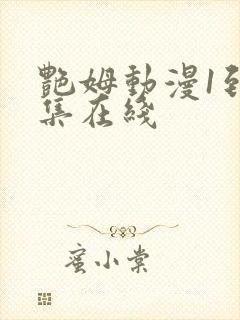 艷姆動漫1到
集在綫
蜜小棠